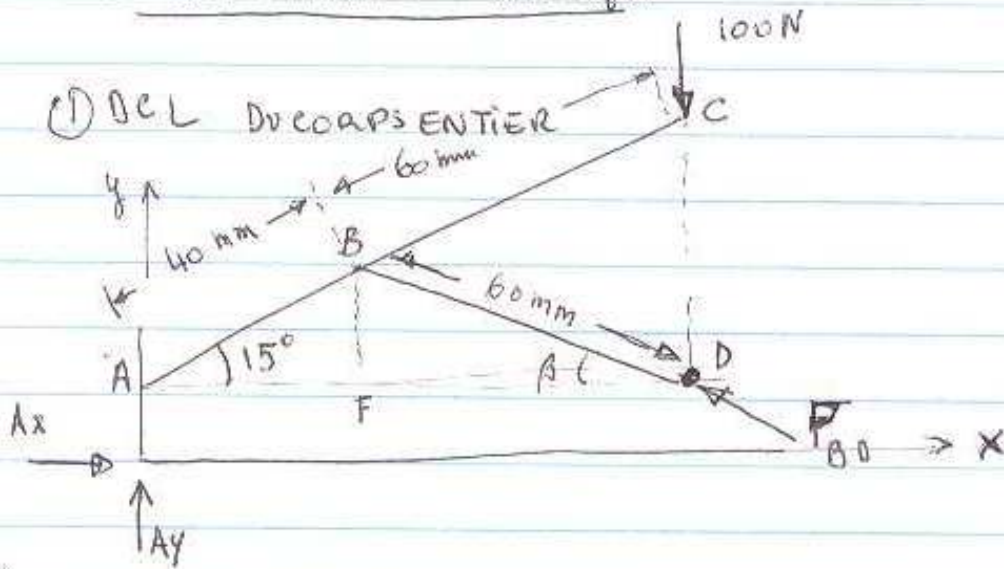 100N
① DCL DU CORPS ENTIER
C
y
60 mm
40 mm
B
60 mm
A
15°
β
D
F
Ax
P BD
X
Ay